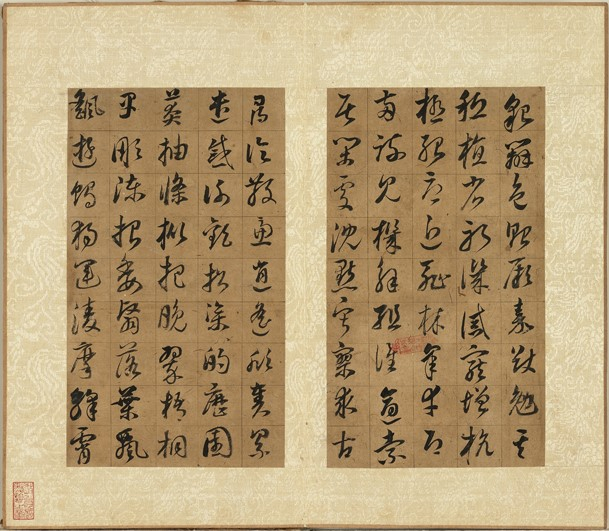 貌辨色貽厥嘉猷勉其
祗植省躬譏誡寵增抗
極殆辱近恥林皋幸即
兩疏見機解組誰逼索
居閑處沈默寂寥求古
尋論散慮逍遙欣奏累
遣慼謝歡招渠的歷園
莽抽條枇杷晚翠梧桐
早凋陳根委翳落葉飄
颻遊鵾獨運凌摩絳霄